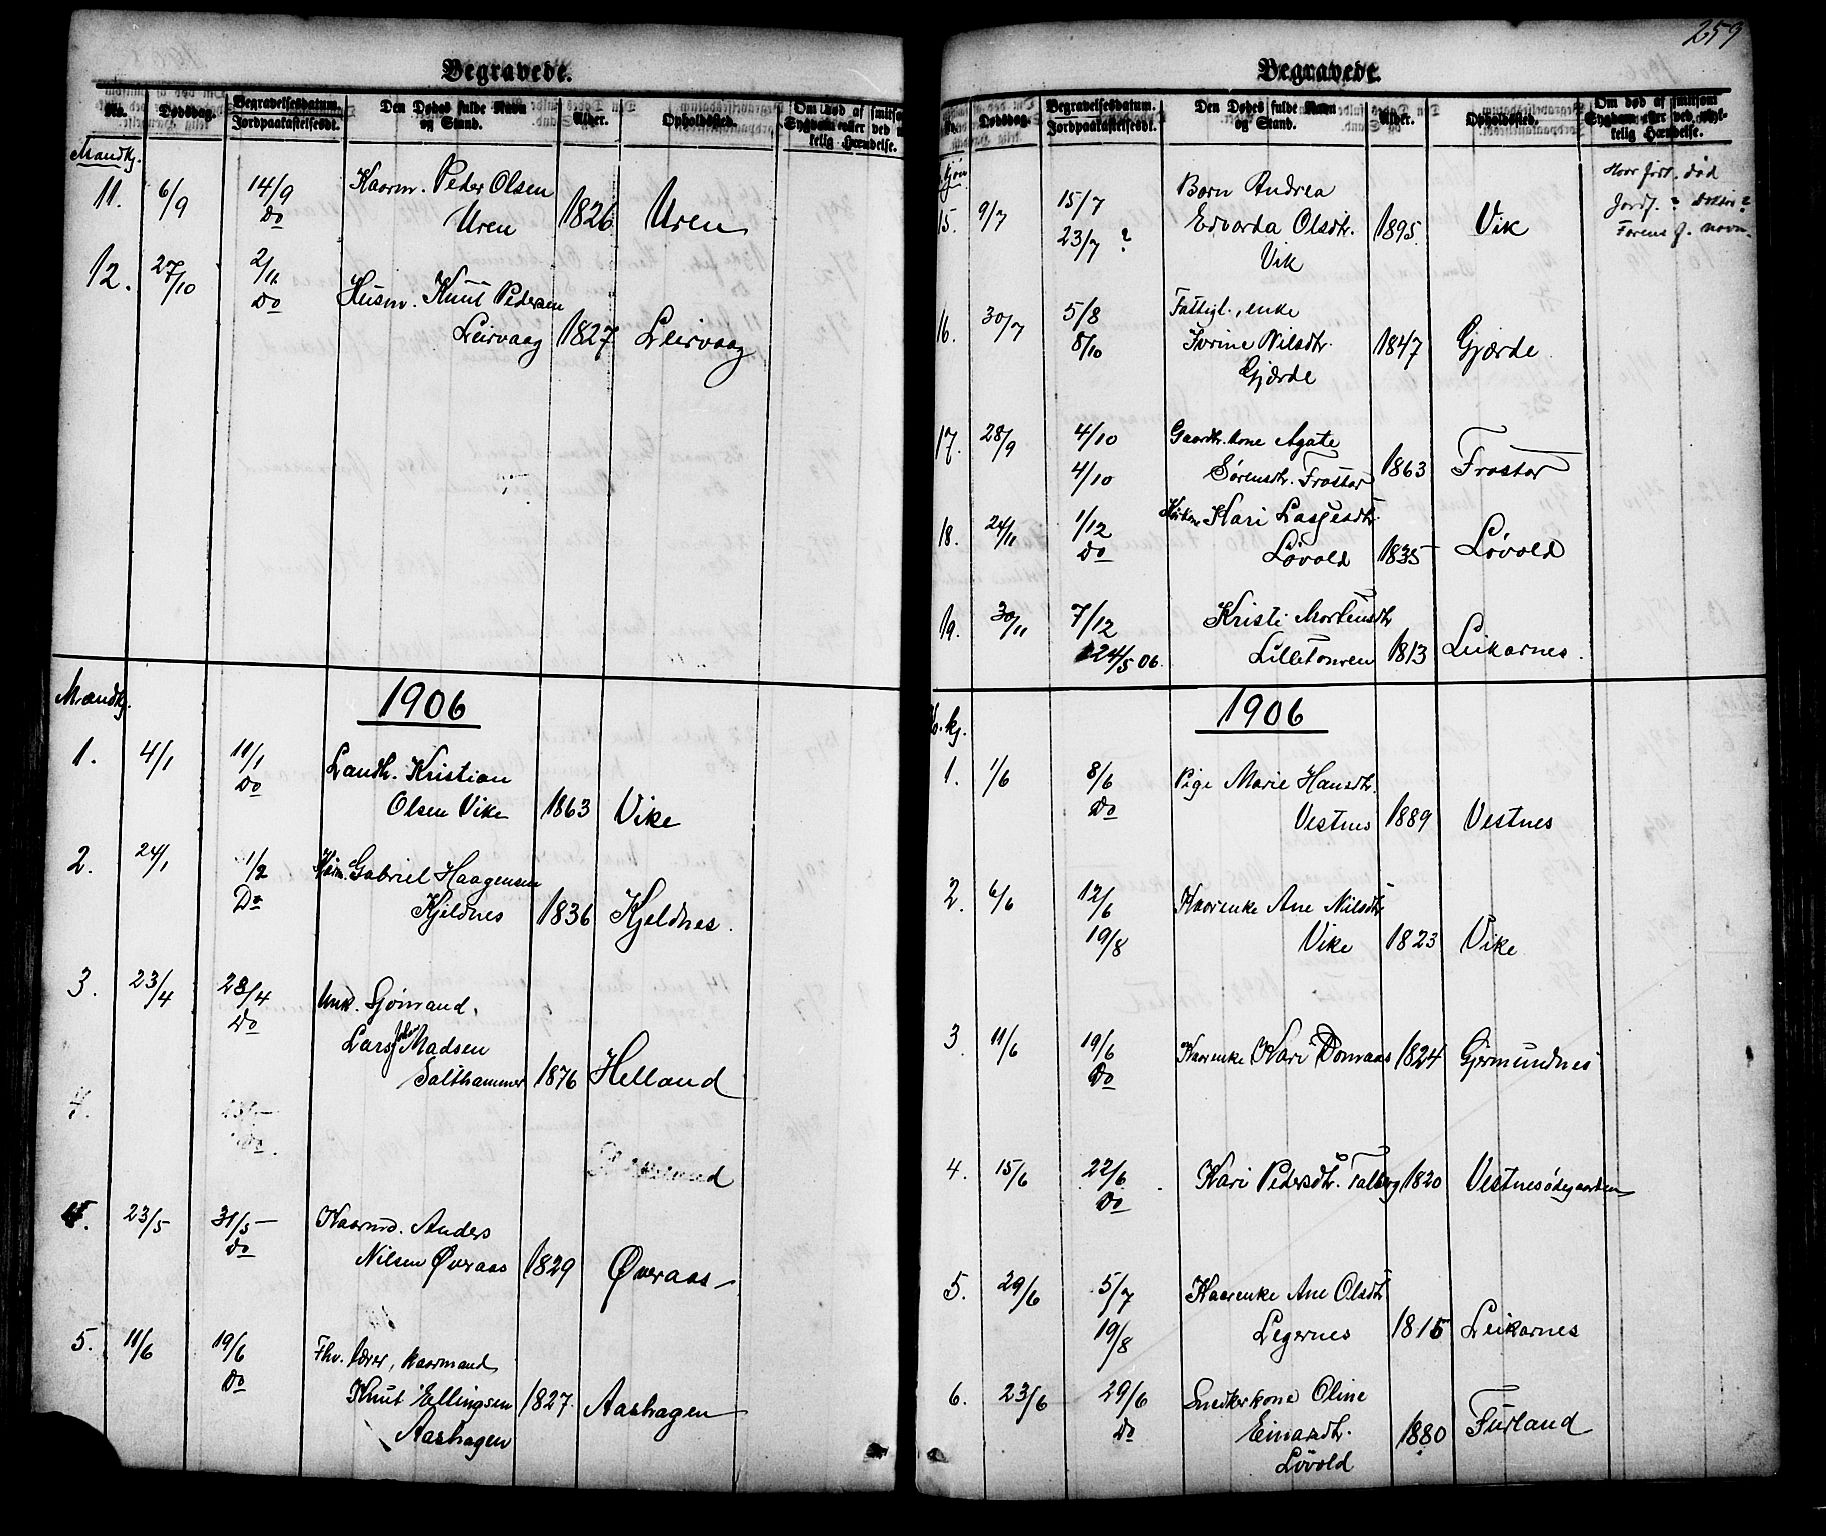 Begravede.
No. Dødsdag. Begravelsesdatum. Jordpaakastelsesdt. Den Dødes fulde Navn og Stand. Alder. Opholdssted. Om død af smitsom Sygdom eller ved
Mandkj.
11. 6/9 14/9 Kaarm. Peder Olsen
Do Uren 1826 Uren
12. 27/10 2/11 Husm. Knut Pedersen
Do Leirvaag 1827 Leirvaag
1906
Mandkj.
1. 4/1 11/1 Landh. Kristian
Do Olsen Vike 1863 Vike
2. 24/1 1/2 Kårm. Gabriel Haagensen
Do Kjeldnes 1836 Kjeldnes.
3. 23/4 28/4 Unk. Sjømand,
Do Lars Joh. Madsen
Salthammer 1876 Helland
4.
Do
4. 23/5 31/5 Kaarmd. Anders
Do Nilsen Øveraas 1829 Øveraas
5. 11/6 19/6 Fhv. lærer, kaarmand
Do Knut Ellingsen 1827. Aashagen
Aashagen
259
Begravede.
Dødsdag. Begravelsesdatum. Jordpaakastelsesdt. Den Dødes fulde Navn og Stand. Alder. Opholdssted. Om død af smitsom Sygdom eller ved ulykkelig Hændelse.
Kjøn
15. 9/7 15/7 Barn Andrea
23/7 ? Edvarda Olsdtr. 1895. Vik
Vik
Hvor død
Jordf. ?
navn.
16. 30/7 5/8 Fattigl., enke
8/10 Iverine Nilsdtr. 1847 Gjærde
Gjærde
17. 28/9 4/10 Gaardbr.kone Agate
4/10 Sørensdtr. Frostar 1863 Frostar
18. 24/11 1/12 Kari Lassesdtr.
Do Løvold 1835 Løvold
19. 30/11 7/12 Kristi Mortensdtr
24/5 06. 1813 Leikarnes.
1906
K. kj.
1. 1/6 8/6 Pige Marie Hansdtr.
Do Vestnes 1889 Vestnes
2. 6/6 12/6 Kaarenke Ane Nilsdtr
19/8 Vike 1823 Vike
3. 11/6 19/6 Kaarenke Kari Domaas 1824 Gjermundnes
Do
4. 15/6 22/6 Kari Pedersdtr. Talberg 1820 Vestnesødegaarden
Do
5. 29/6 5/7 Kaarenke Ane Olsdtr
19/8 Legernes 1815 Leikarnes
6. 23/6 29/6 Snedkerkone Oline
Do Einarsdtr. 1880 Furland
Løvold